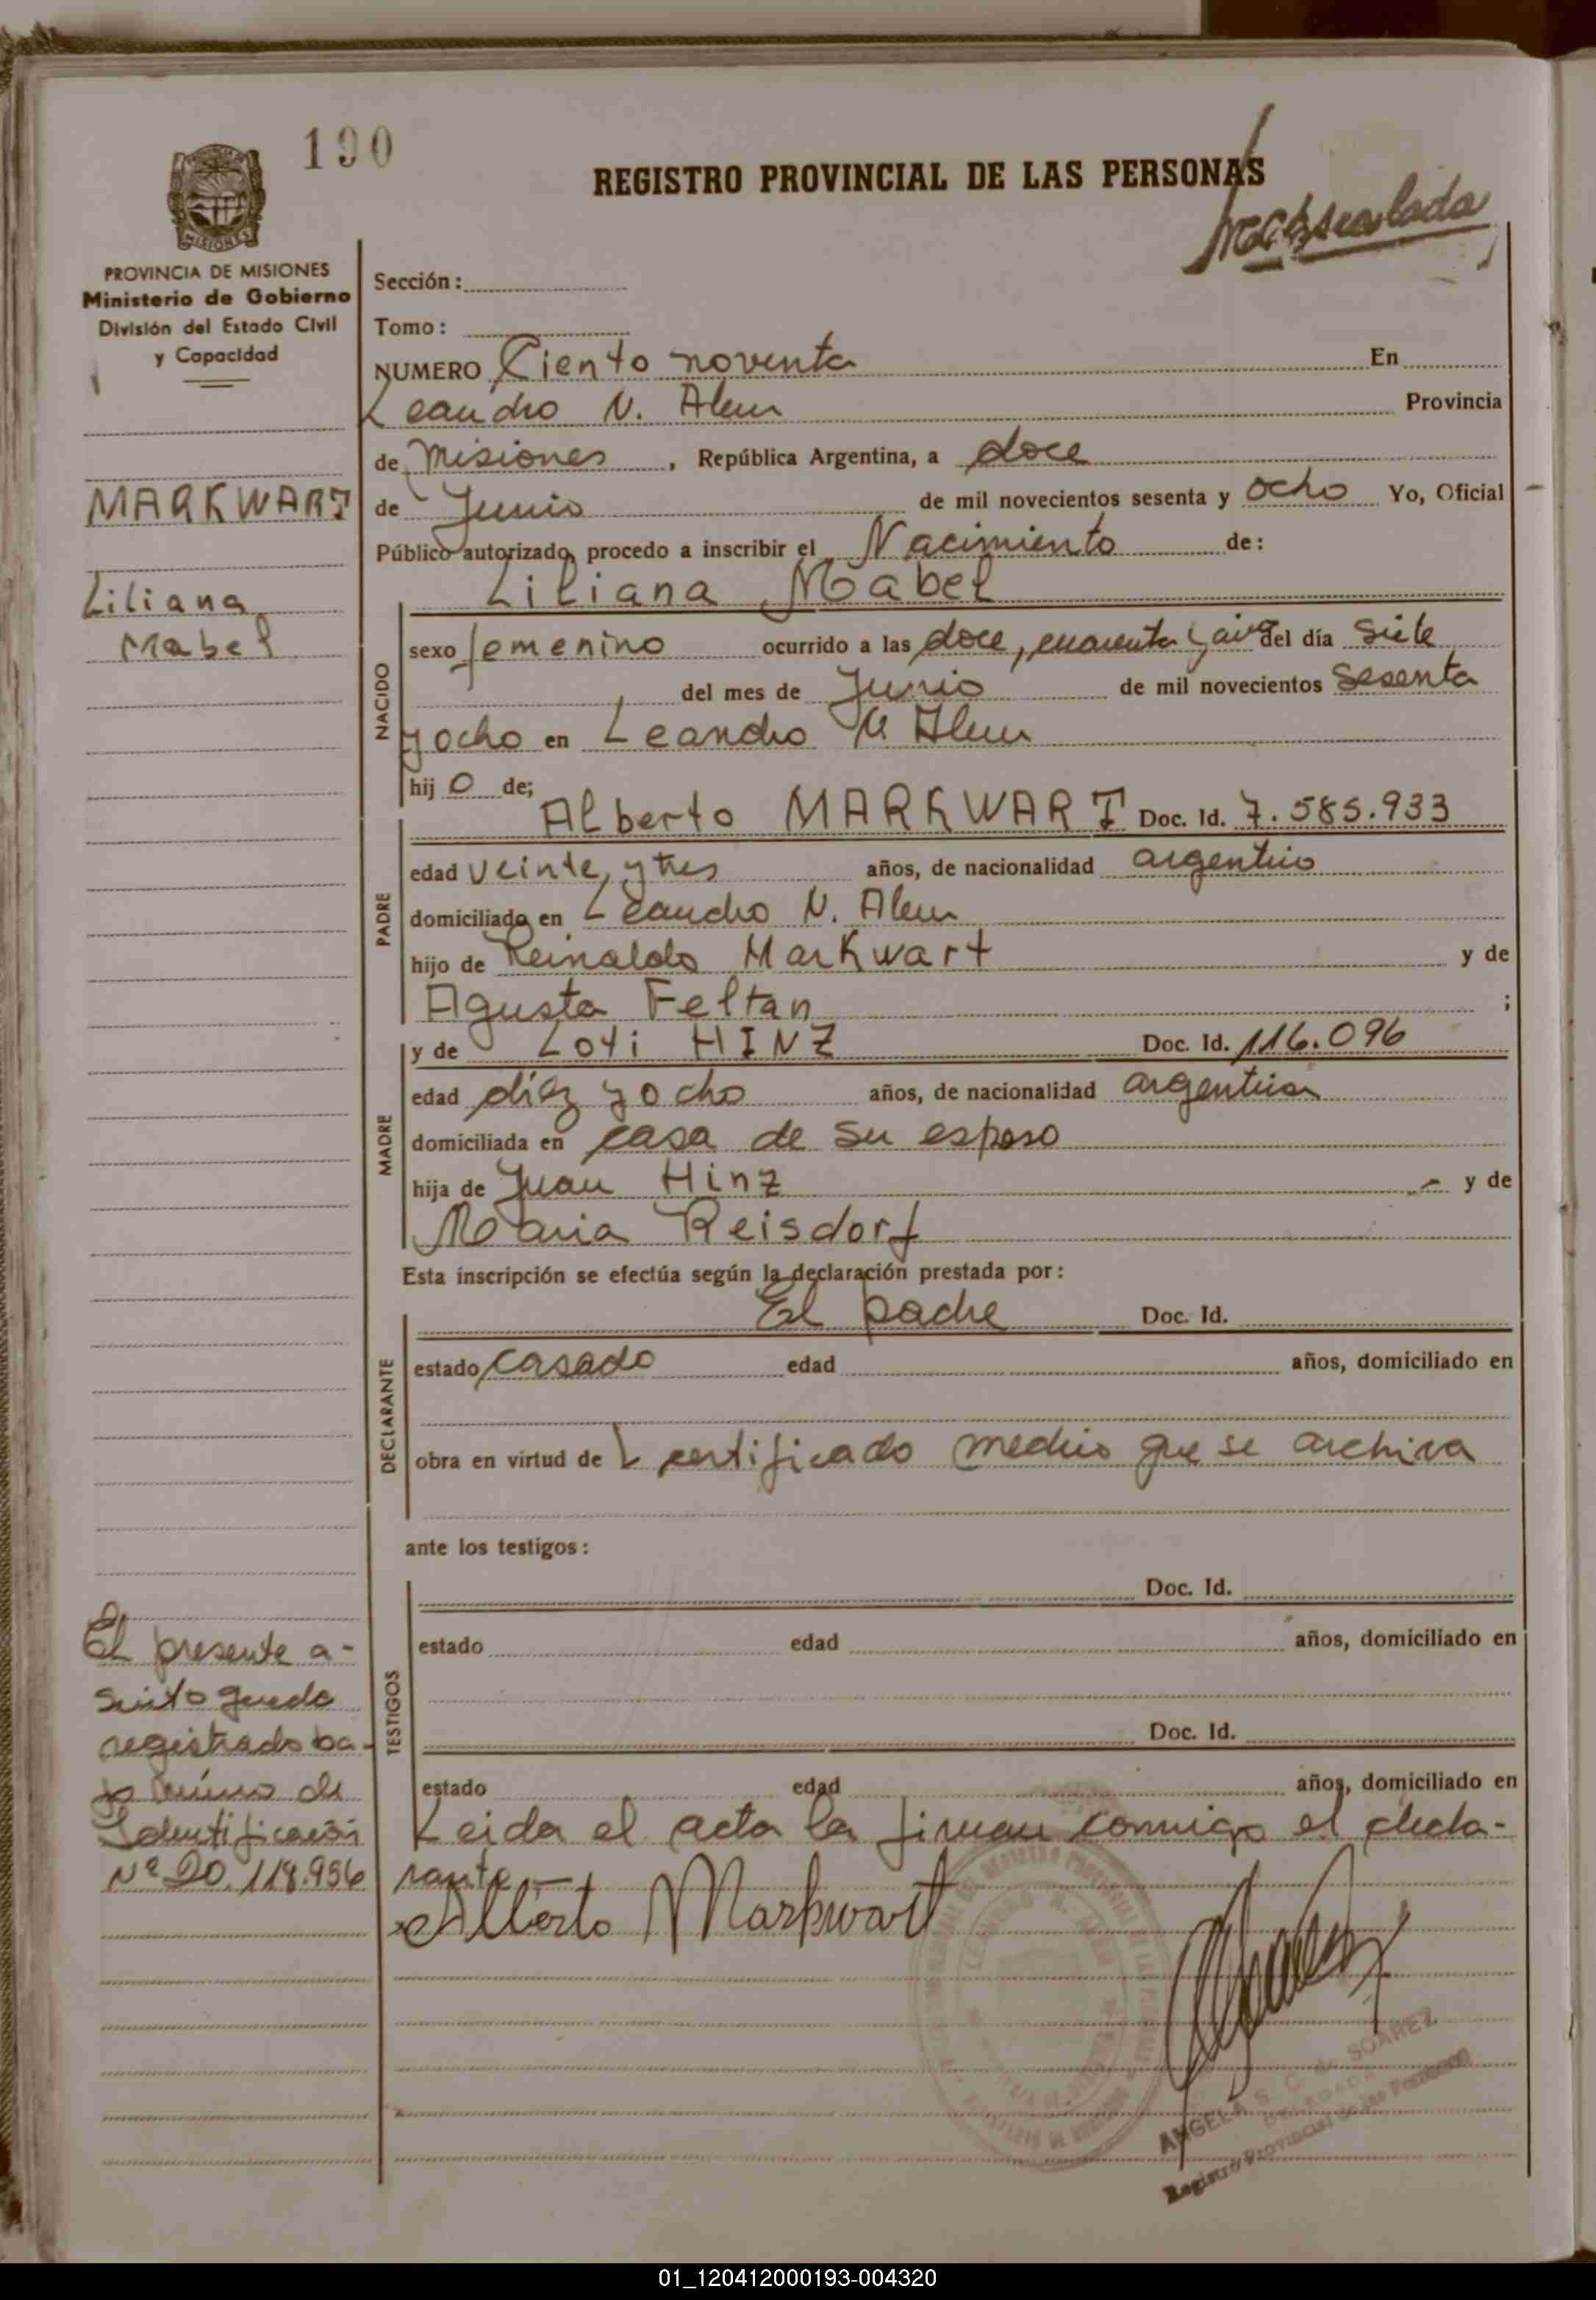 190
REGISTRO PROVINCIAL DE LAS PERSONAS
PROVINCIA DE MISIONES
Ministerio de Gobierno
División del Estado Civil
y Capacidad
MARKWART
Liliana
Mabel
Sección:
Tomo:
NUMERO Ciento noventa En
Leandro N. Alem Provincia
de Misiones, República Argentina, a doce
de Junio de mil novecientos sesenta y ocho Yo, Oficial
Público autorizado, procedo a inscribir el Nacimiento de:
Liliana Mabel
NACIDO
sexo femenino ocurrido a las doce, cuarenta y del día siete
del mes de Junio de mil novecientos sesenta
y ocho en Leandro N Alem
hij o de;
PADRE
Alberto MARKWART Doc. Id. 7.585.933
edad veinte y tres años, de nacionalidad argentino
domiciliado en Leandro N. Alem
hijo de Reinaldo Markwart y de
Agusta Feltan ;
MADRE
y de Loti HINZ Doc. Id. 116.096
edad diez y ocho años, de nacionalidad argentina
domiciliada en casa de su esposo
hija de Juan Hinz y de
Maria Reisdorf
Esta inscripción se efectúa según la declaración prestada por:
DECLARANTE
El padre Doc. Id.
estado casado edad años, domiciliado en
obra en virtud de certificado medico que se archiva
ante los testigos:
TESTIGOS
Doc. Id.
estado edad años, domiciliado en
Doc. Id.
estado edad años, domiciliado en
Leida el acta la firman conmigo el decla-
rante.-
Alberto Markwart
El presente a-
siento queda
registrado ba-
jo de
Identificación
Nº 20.118.956
ANGELA S. C. de SOAREZ
DELEGADA
Registro Provincial de las Personas
01_120412000193-004320